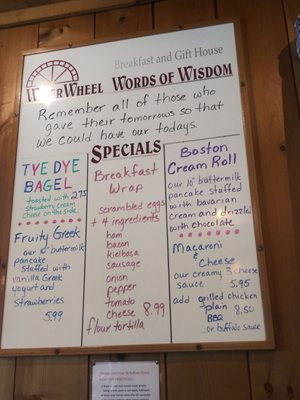 Breakfast and Gift House
WATERWHEEL WORDS OF WISDOM
Remember all of those who
gave their tomorrows so that
we could have our todays.
SPECIALS
TYE DYE
BAGEL
toasted with 2.75
strawberry cream
cheese on the side
Fruity Greek
our 10" buttermilk
pancake
stuffed with
vanilla Greek
yogurt and
strawberries
5.99
Breakfast
Wrap
scrambled eggs
+ 4 ingredients
ham
bacon
kielbasa
sausage
onion
pepper
tomato
cheese 8.99
flour tortilla
Boston
Cream Roll
our 10" buttermilk
pancake stuffed
with bavarian
cream and drizzled
with chocolate
Macaroni
& Cheese
our creamy 3 cheese
sauce 5.95
add grilled chicken
plain 8.50
BBQ
or buffalo sauce